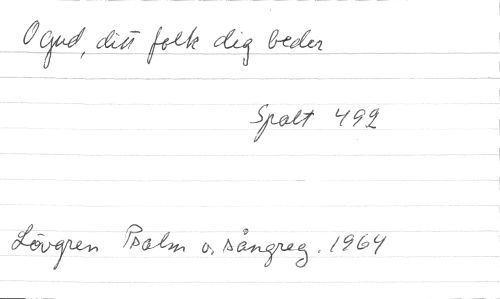 O gud, ditt folk dig beder
Spalt 492
Lövgren Psalm o. sångreg. 1964